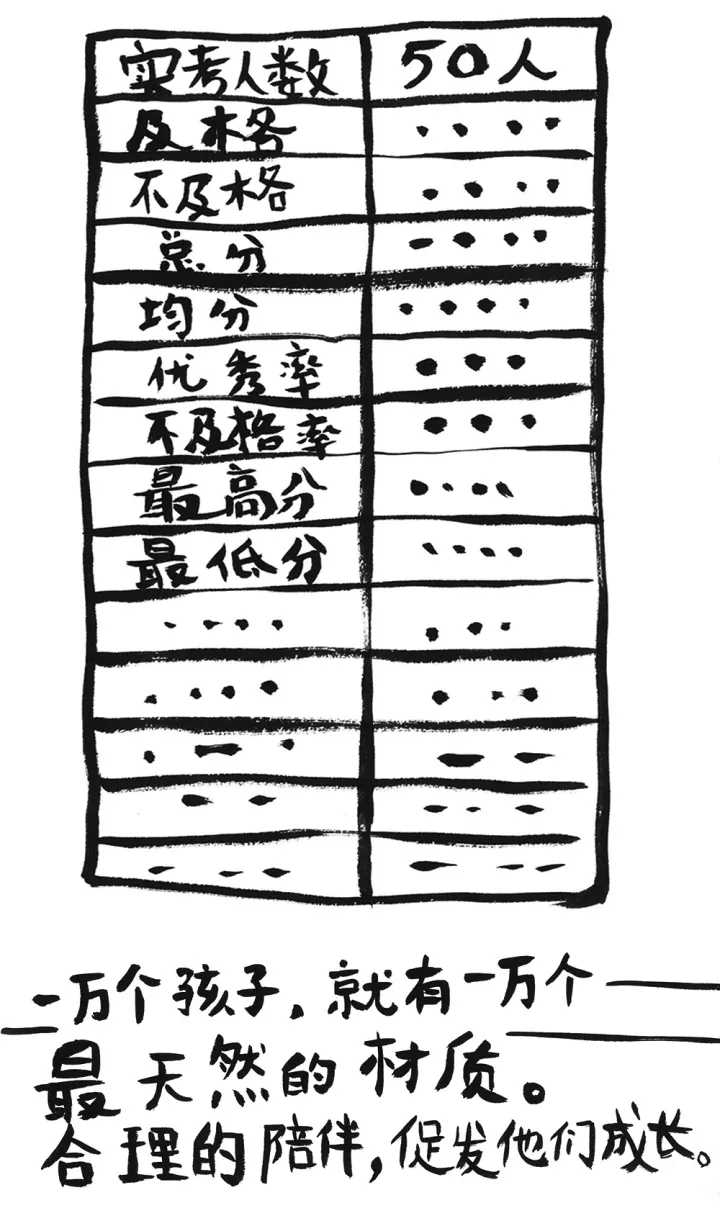 实考人数 50人
及格 ····
不及格 ····
总分 ····
均分 ····
优秀率 ···
不及格率 ···
最高分 ····
最低分 ····
一万个孩子,就有一万个——
——最天然的材质。
合理的陪伴,促发他们成长。